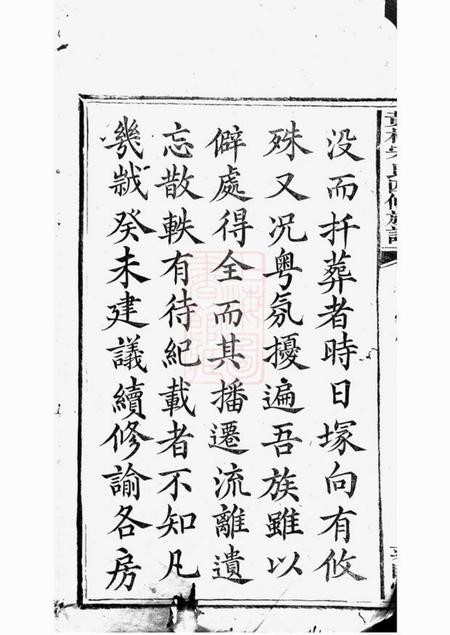 没而扦葬者時日塚向有攸
殊又况粤氛擾遍吾族雖以
僻處得全而其播遷流離遺
忘散軼有待紀載者不知凡
幾誠癸未建議續修諭各房